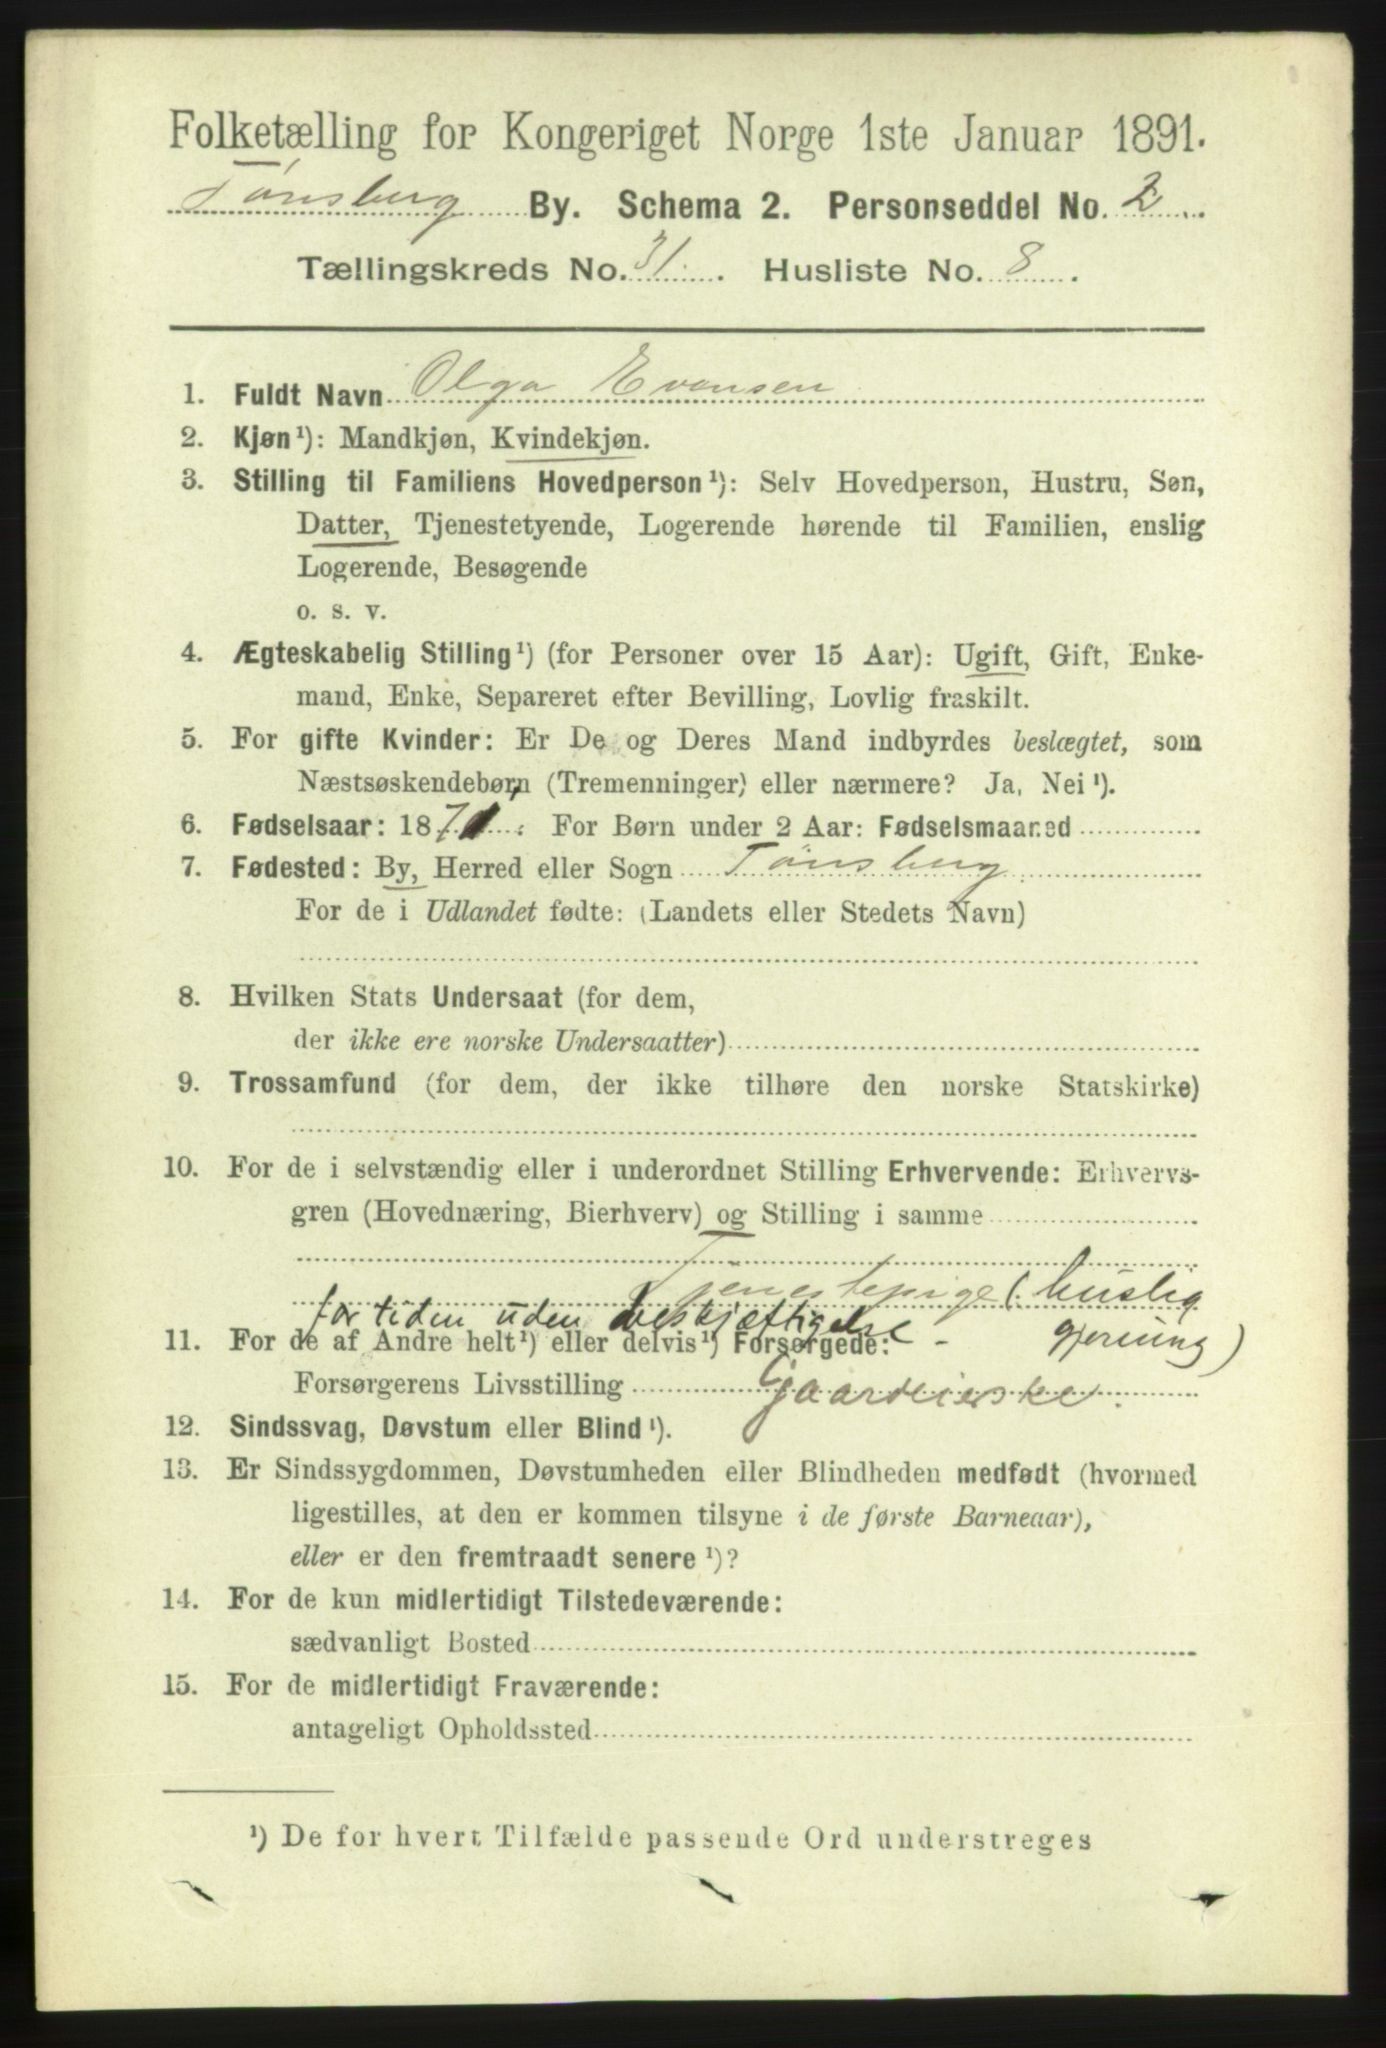 Folketælling for Kongeriget Norge 1ste Januar 1891.
Tønsberg By. Schema 2. Personseddel No. 2
Tællingskreds No. 31. Husliste No. 8.
1. Fuldt Navn Olga Evensen
2. Kjøn¹): Mandkjøn, Kvindekjøn.
3. Stilling til Familiens Hovedperson¹): Selv Hovedperson, Hustru, Søn,
Datter, Tjenestetyende, Logerende hørende til Familien, enslig
Logerende, Besøgende
o. s. v.
4. Ægteskabelig Stilling¹) (for Personer over 15 Aar): Ugift, Gift, Enke-
mand, Enke, Separeret efter Bevilling, Lovlig fraskilt.
5. For gifte Kvinder: Er De og Deres Mand indbyrdes beslægtet, som
Næstsøskendebørn (Tremenninger) eller nærmere? Ja, Nei¹).
6. Fødselsaar: 187 . For Børn under 2 Aar: Fødselsmaaned
7. Fødested: By, Herred eller Sogn Tønsberg
For de i Udlandet fødte: (Landets eller Stedets Navn)
8. Hvilken Stats Undersaat (for dem,
der ikke ere norske Undersaatter)
9. Trossamfund (for dem, der ikke tilhøre den norske Statskirke)
10. For de i selvstændig eller i underordnet Stilling Erhvervende: Erhvervs-
gren (Hovednæring, Bierhverv) og Stilling i samme
Tjenestepige (huslig
for tiden uden beskjæftigelse - gjerning)
11. For de af Andre helt¹) eller delvis¹) Forsørgede:
Forsørgerens Livsstilling Gaardeierske.
12. Sindssvag, Døvstum eller Blind¹).
13. Er Sindssygdommen, Døvstumheden eller Blindheden medfødt (hvormed
ligestilles, at den er kommen tilsyne i de første Barneaar),
eller er den fremtraadt senere¹)?
14. For de kun midlertidigt Tilstedeværende:
sædvanligt Bosted
15. For de midlertidigt Fraværende:
antageligt Opholdssted
¹) De for hvert Tilfælde passende Ord understreges